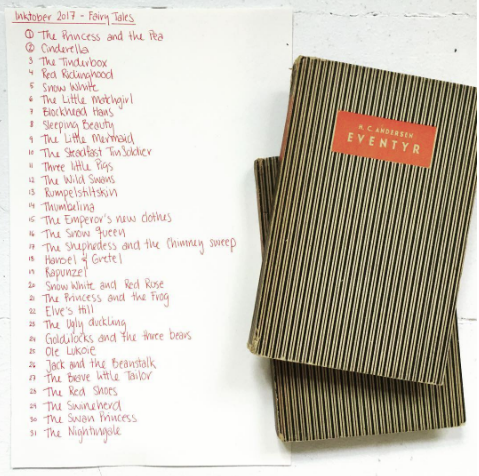 Inktober 2017 - Fairy Tales
1 The Princess and the Pea
2 Cinderella
3 The Tinderbox
4 Red Ridinghood
5 Snow White
6 The Little Matchgirl
7 Blockhead Hans
8 Sleeping Beauty
9 The Little Mermaid
10 The Steadfast Tin Soldier
11 Three little Pigs
12 The Wild Swans
13 Rumpelstiltskin
14 Thumbelina
15 The Emperor's new clothes
16 The Snow Queen
17 The Shephedess and the Chimney sweep
18 Hansel & Gretel
19 Rapunzel
20 Snow White and Red Rose
21 The Princess and the Frog
22 Elve's Hill
23 The Ugly duckling
24 Goldilocks and the three bears
25 Ole Lukoie
26 Jack and the Beanstalk
27 The Brave little Tailor
28 The Red Shoes
29 The Swineherd
30 The Swan Princess
31 The Nightingale
H. C. ANDERSEN
EVENTYR